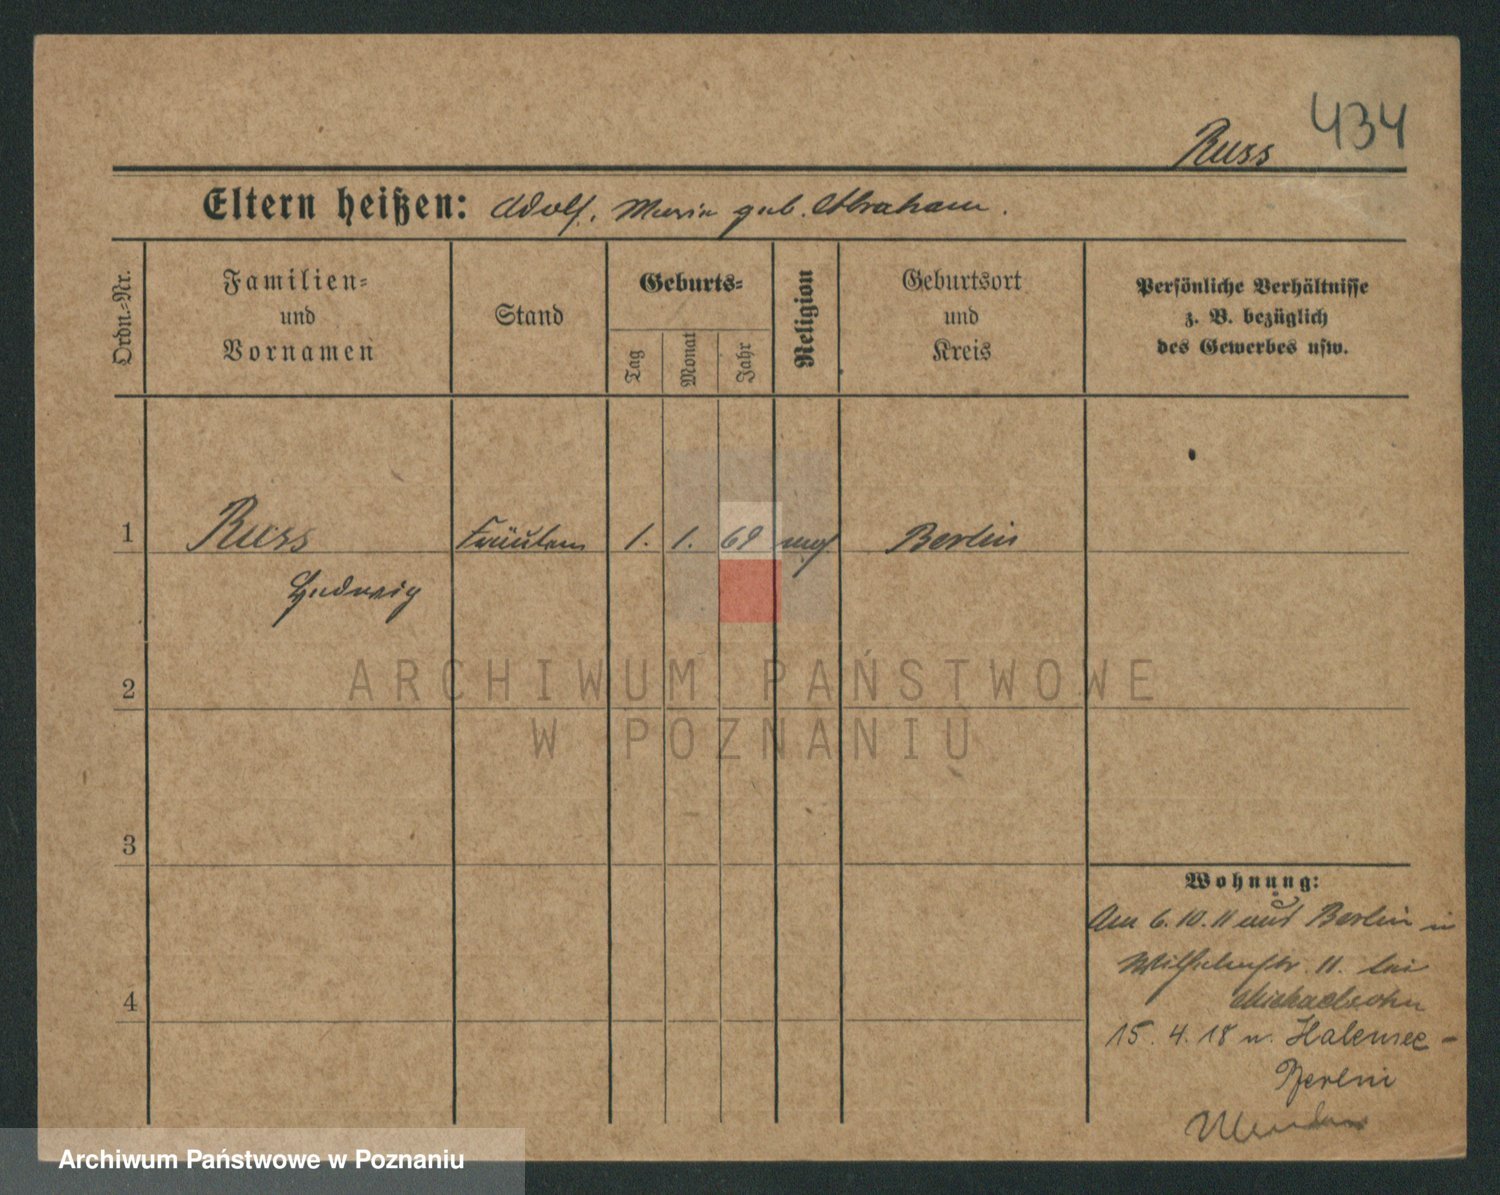 434
Russ
Eltern heißen: Adolf, Marie geb. Abraham.
Ordn.-Nr.
Familien-
und
Vornamen
Stand
Geburts-
Tag
Monat
Jahr
Religion
Geburtsort
und
Kreis
Persönliche Verhältnisse
z. B. bezüglich
des Gewerbes usw.
1 Russ Fräulein 1. 1. 69 Berlin
Hedwig
2
ARCHIWUM PAŃSTWOWE
W POZNANIU
3
Wohnung:
Am 6.10.11 aus Berlin in
Wilhelmstr. 11. bei
Michaelsohn
4
15. 4. 18 n. Halensee-
Berlin
Archiwum Państwowe w Poznaniu